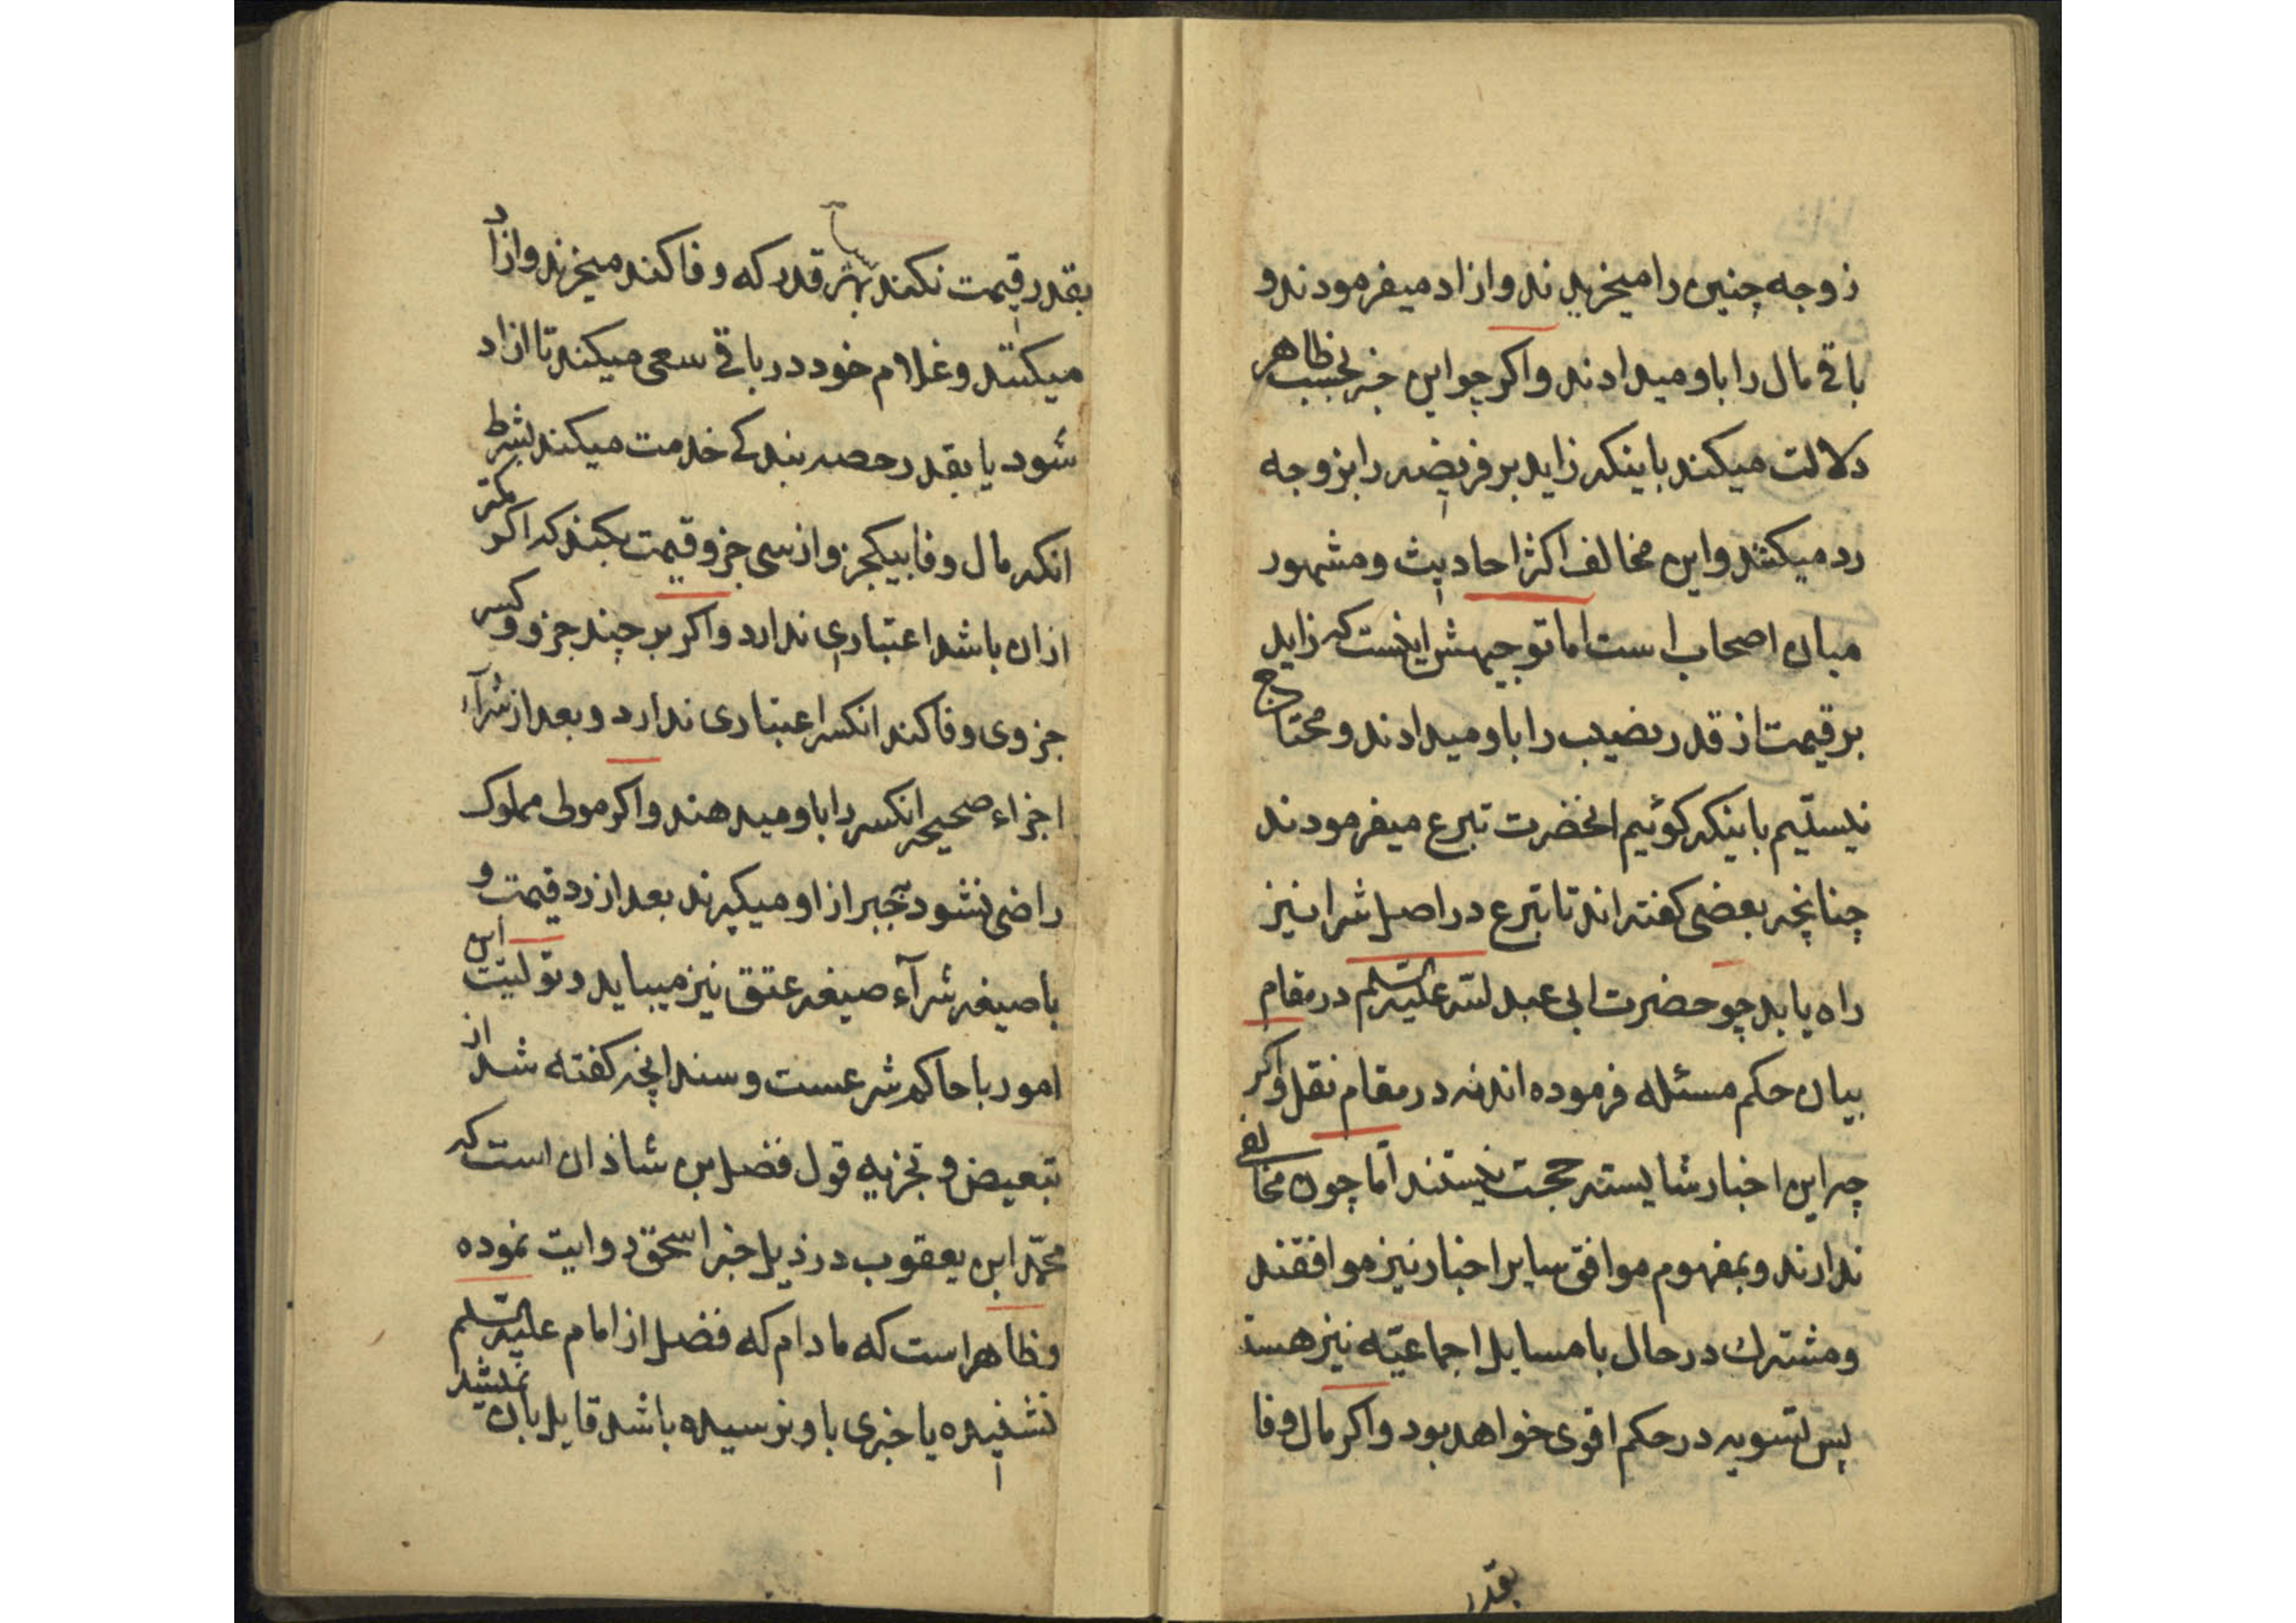 زوجه چنین را میخریدند و ازاد میفرمودند و
باقی مال را باو میدادند و اکر چو این خبر بحسب ظاهر
دلالت میکند باینکه زاید بر فریضه را بزوجه
رد میکنند و این مخالف اکثر احادیث و مشهور
میان اصحاب است اما توجیهش اینست که زاید
بر قیمت از قدر نصیب را باو میدادند و محتاج
نیستیم باینکه کوئیم انحضرت تبرع میفرمودند
چنانچه بعضی کفته اند تا تبرع در اصل شرا نیز
راه یابد چو حضرت ابی عبد لله علیه السلم در مقام
بیان حکم مسئله فرموده اند نه در مقام نقل و اکر
چه این اخبار شایسته حجت نیستند اما چون مخالفی
ندارند و بمفهوم موافق سایر اخبار نیز موافقند
و مشترک در حال با مسایل اجماعیّه نیز هستند
پس تسویه در حکم اقوی خواهد بود و اکر مال وفا
بقدر
بقدر قیمت نکند بهر قدر که وفا کند میخرند و ازاد
میکنند و غلام خود در باقی سعی میکند تا ازاد
شود یا بقدر حصه بندکی خدمت میکند بشرط
انکه مال وفا بیکجزو از سی جزو قیمت بکند که اکر کمتر
ازان باشد اعتباری ندارد و اکر بر چند جزو و کسر
جزوی وفا کند انکسر اعتباری ندارد و بعد از شرآء
اجزاء صحیحه انکسر را باو میدهند و اکر مولی مملوک
راضی نشود بجبر از او میکیرند بعد از رد قیمت و
با صیغه شرآء صیغه عتق نیز میباید و تولیت این
امور با حاکم شرعست و سند انچه کفته شد از
تبعیض و تجزیه قول فضل بن شاذان است که
محمّد ابن یعقوب در ذیل خبر اسحق روایت نموده
و ظاهر است که مادام که فضل از امام علیه السلم
نشنیده یا خبری باو نرسیده باشد قایل بان نمیشد